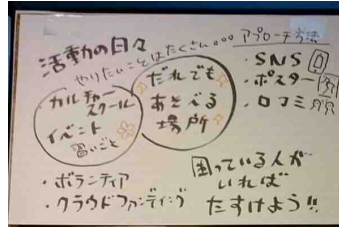 活動の日々
やりたいことはたくさん。。。
アプローチ方法
・SNS
・ポスター
・口コミ
・カルチャー
スクール
イベント
習いごと
だれでも
あそべる
場所
・ボランティア
・クラウドファンディング
困っている人が
いれば
たすけよう!!